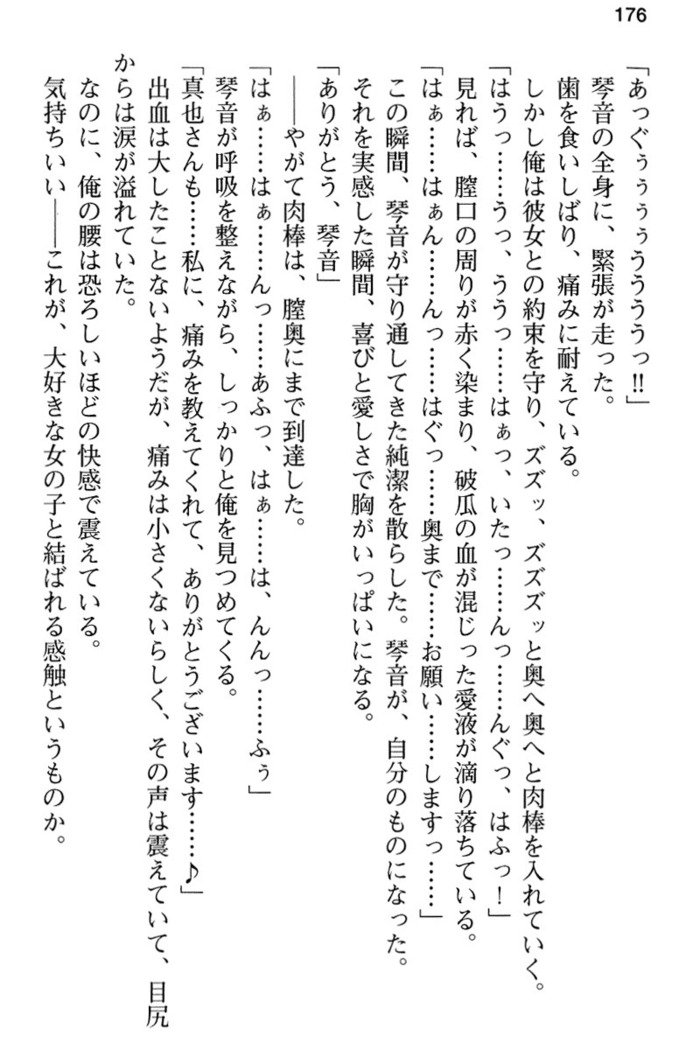 176
「あっぐぅぅぅぅううううっ!!」
琴音の全身に、緊張が走った。
歯を食いしばり、痛みに耐えている。
しかし俺は彼女との約束を守り、ズズッ、ズズズッと奥へ奥へと肉棒を入れていく。
「はうっ……うっ、ううっ……はぁっ、いたっ……んっ……んぐっ、はふっ！」
見れば、膣口の周りが赤く染まり、破瓜の血が混じった愛液が滴り落ちている。
「はぁ……はぁん……んっ……はぐっ……奥まで……お願い……しますっ……」
この瞬間、琴音が守り通してきた純潔を散らした。琴音が、自分のものになった。
それを実感した瞬間、喜びと愛しさで胸がいっぱいになる。
「ありがとう、琴音」
――やがて肉棒は、膣奥にまで到達した。
「はぁ……はぁ……んっ……あふっ、はぁ……は、んんっ……ふぅ」
琴音が呼吸を整えながら、しっかりと俺を見つめてくる。
「真也さんも……私に、痛みを教えてくれて、ありがとうございます……♪」
出血は大したことないようだが、痛みは小さくないらしく、その声は震えていて、目尻
からは涙が溢れていた。
なのに、俺の腰は恐ろしいほどの快感で震えている。
気持ちいい――これが、大好きな女の子と結ばれる感触というものか。